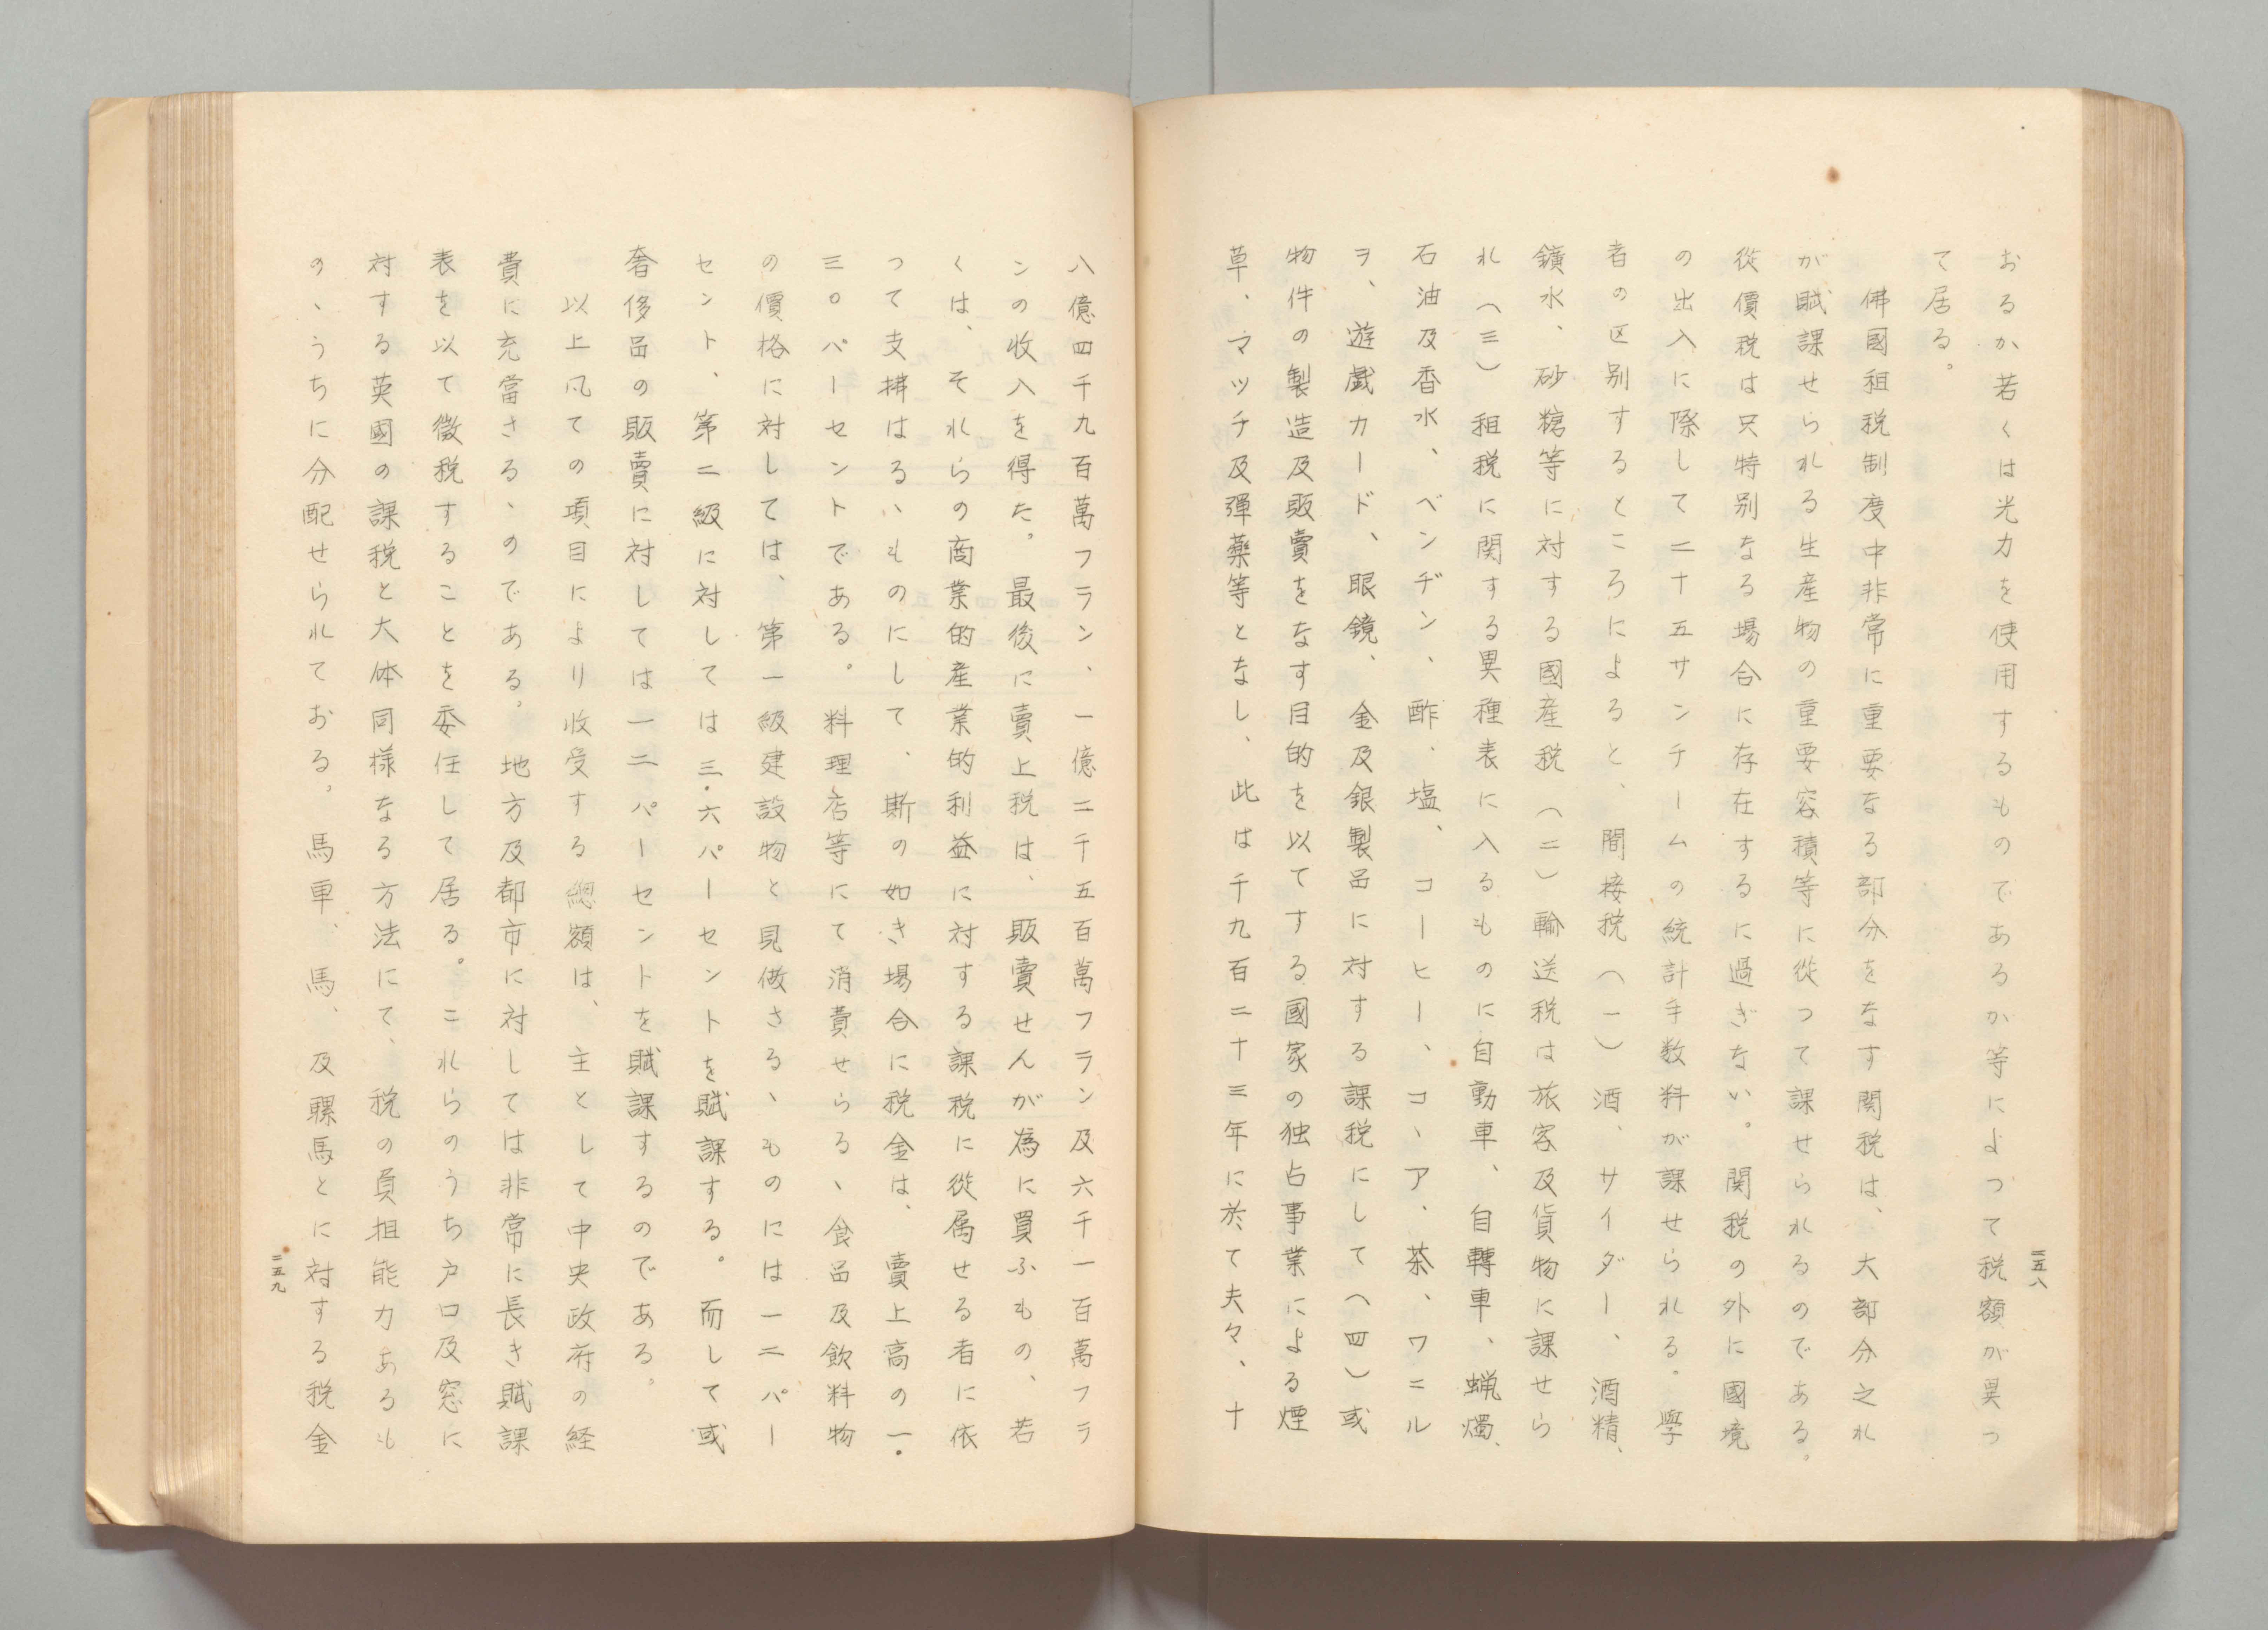 おるか若くは光力を使用するものであるか等によつて税額が異つ
て居る。
佛國租税制度中非常に重要なる部分をなす関税は、大部分之れ
が賦課せられる生産物の重要容積等に從つて課せられるのである。
從價税は只特別なる場合に存在するに過ぎない。関税の外に國境
の出入に際して二十五サンチームの統計手数料が課せられる。學
者の区别するところによると、間接税(一)酒、サイダー、酒精、
鑛水、砂糖等に対する國産税(二)輸送税は旅客及貨物に課せら
れ(三)租税に関する異種表に入るものに自動車、自轉車、蝋燭、
石油及香水、ベンヂン、酢、塩、コーヒー、コヽア、茶、ワニル
ヲ、遊戯カード、眼鏡、金及銀製品に対する課税にして(四)或
物件の製造及販賣をなす目的を以てする國家の独占事業による煙
草、マッチ及彈藥等となし、此は千九百二十三年に於て夫々、十
二五八
八億四千九百萬フラン、一億二千五百萬フラン及六千一百萬フラ
ンの收入を得た。最後に賣上税は、販賣せんが為に買ふもの、若
くは、それらの商業的産業的利益に対する課税に從属せる者に依
つて支拂はるヽものにして、斯の如き場合に税金は、賣上高の一・
三〇パーセントである。料理店等にて消費せらるヽ食品及飲料物
の價格に対しては、第一級建設物と見做さるヽものには一二パー
セント、第二級に対しては三・六パーセントを賦課する。而して或
奢侈品の販賣に対しては一二パーセントを賦課するのである。
以上凡ての項目により收受する總額は、主として中央政府の経
費に充當さるヽのである。地方及都市に対しては非常に長き賦課
表を以て徴税することを委任して居る。これらのうち户口及窓に
対する英國の課税と大体同様なる方法にて、税の負担能力あるも
のヽうちに分配せられておる。馬車、馬、及騾馬とに対する税金
二五九